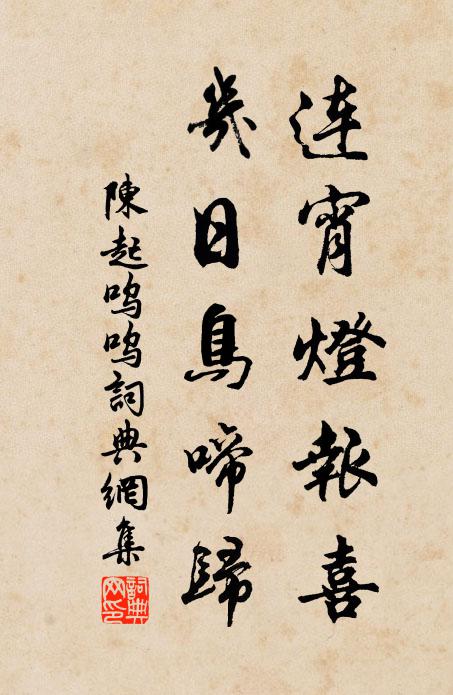 連宵燈報喜
幾日鳥啼歸
陳起鳴鳴詞典網集
詞典網印